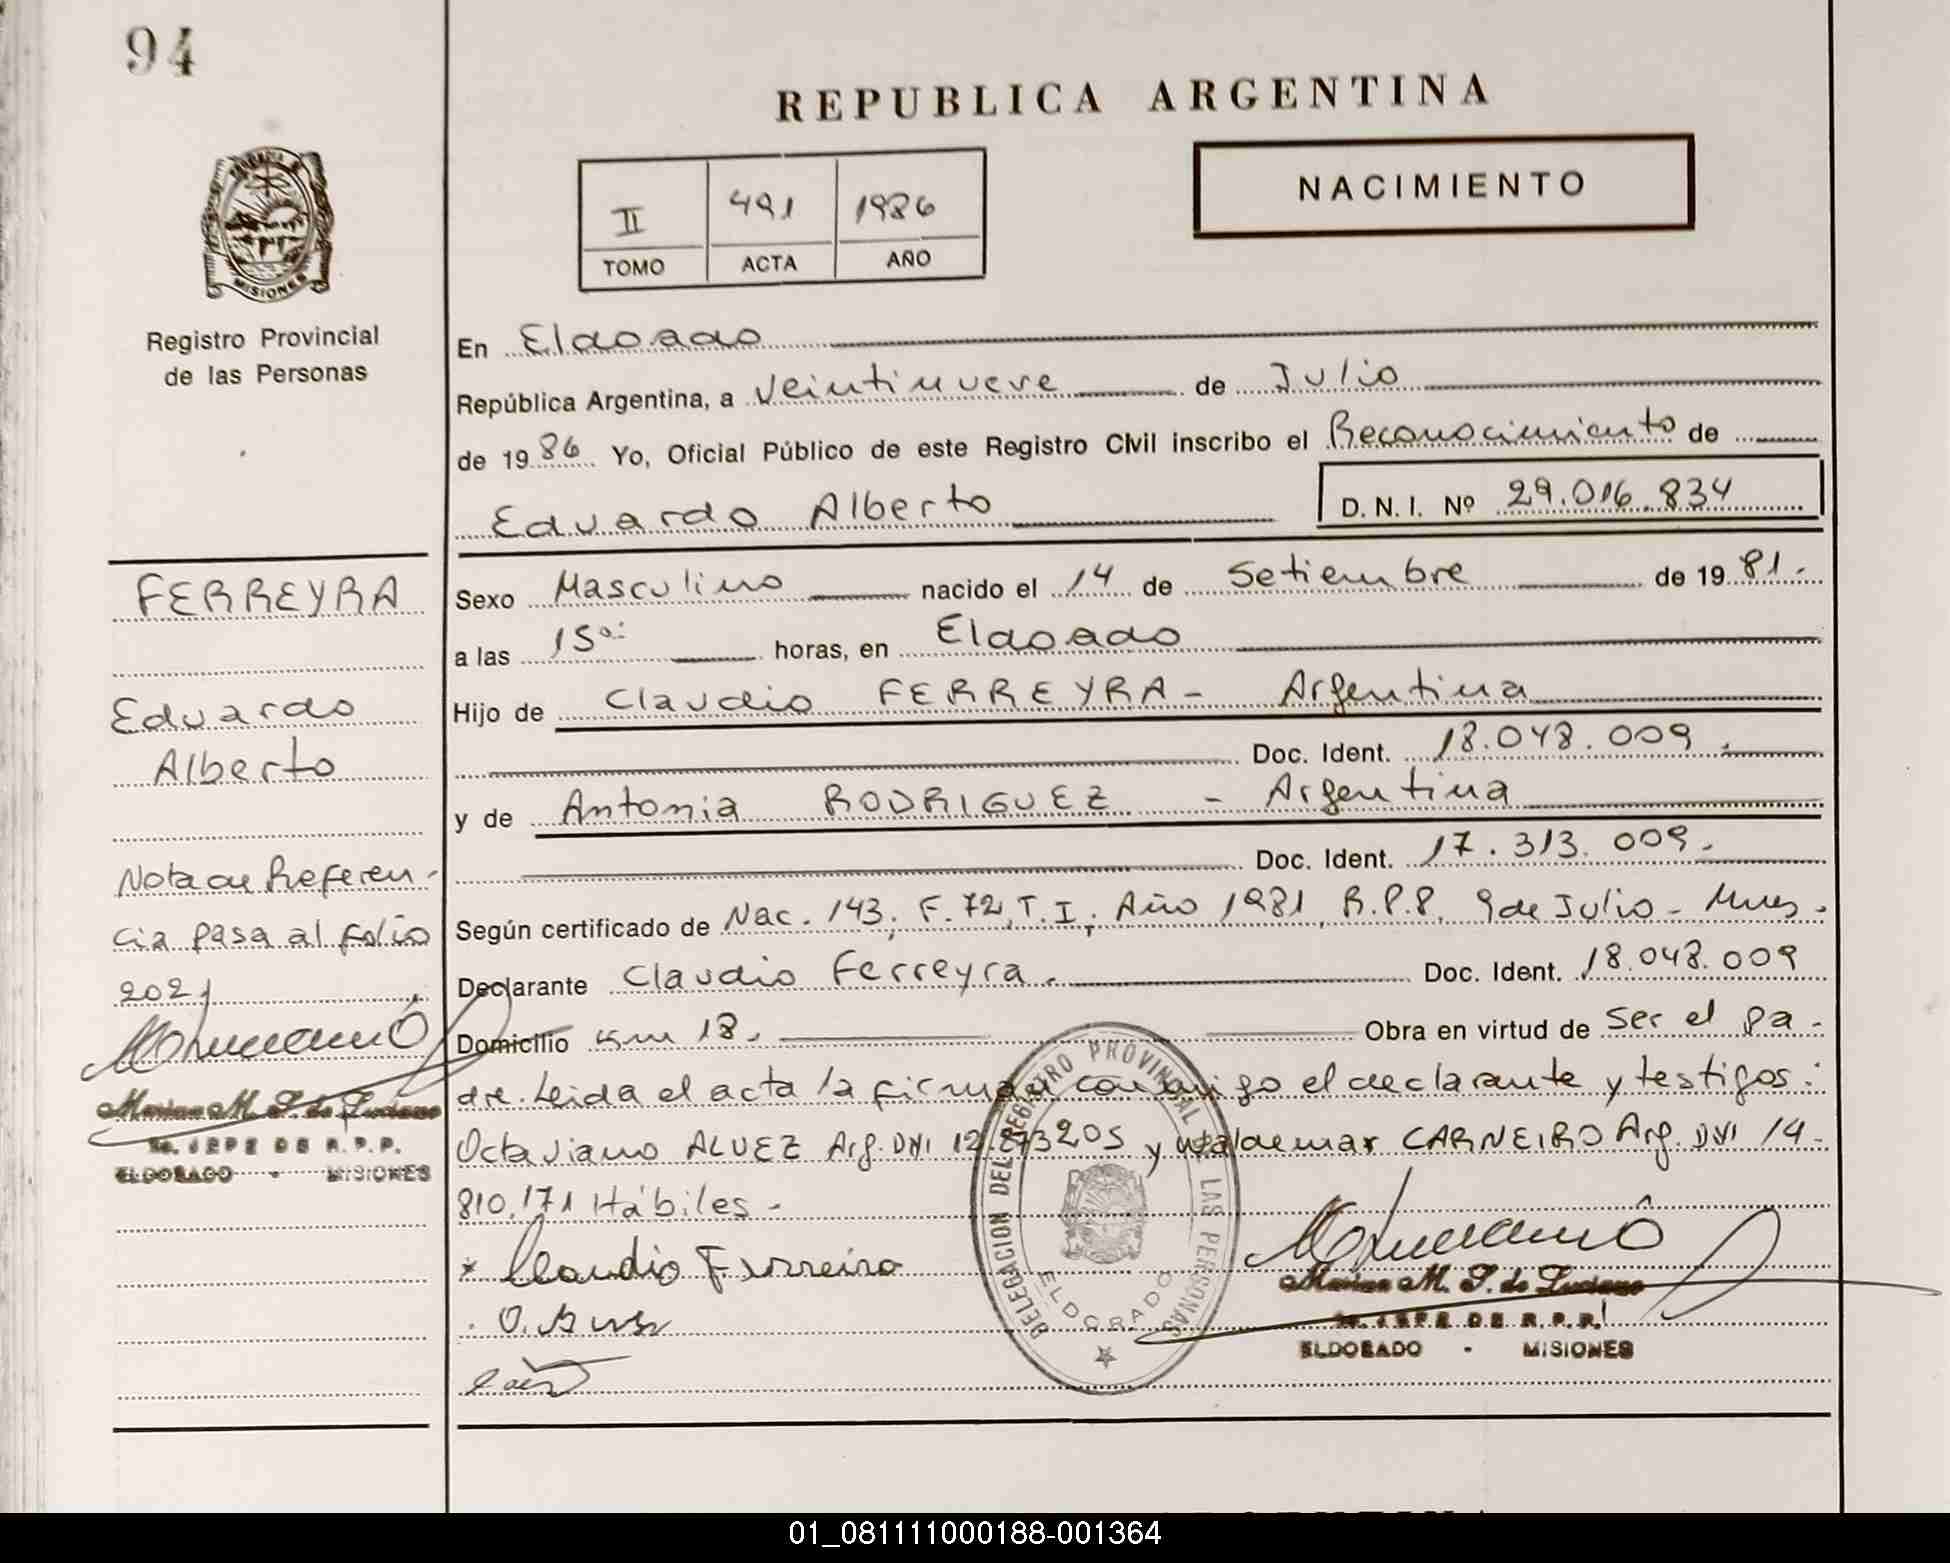 94
REPUBLICA ARGENTINA
NACIMIENTO
II 491 1986
TOMO ACTA AÑO
MISIONES
Registro Provincial
de las Personas
En Eldorado
República Argentina, a Veintinueve de Julio
de 1986 Yo, Oficial Público de este Registro Civil inscribo el Reconocimiento de
Eduardo Alberto D. N. I. Nº 29.016.834
FERREYRA
Eduardo
Alberto
Nota de Referen-
cia pasa al folio
202
Marina M. de Luciano
JEFE DE R.P.P.
ELDORADO - MISIONES
Sexo Masculino nacido el 14 de Setiembre de 1981.
a las 15 horas, en Eldorado
Hijo de Claudio FERREYRA - Argentina
Doc. Ident. 18.048.009.
y de Antonia RODRIGUEZ - Argentina
Doc. Ident. 17.313.009.
Según certificado de Nac. 143, F. 72, T. I, Año 1981, R.P.P. 9 de Julio - Mnes.
Declarante Claudio Ferreyra. Doc. Ident. 18.048.009
Domicilio km 18. Obra en virtud de ser el pa-
dre. Leida el acta la firman conmigo el declarante y testigos:
Octaviano ALVEZ Arg. DNI 12.873205 y Waldemar CARNEIRO Arg. DNI 14.
810.171 Hábiles.-
Claudio Ferreira
DELEGACION DEL REGISTRO PROVINCIAL DE LAS PERSONAS
ELDORADO
Marina M. de Luciano
JEFE DE R.P.P.
ELDORADO - MISIONES
01_081111000188-001364